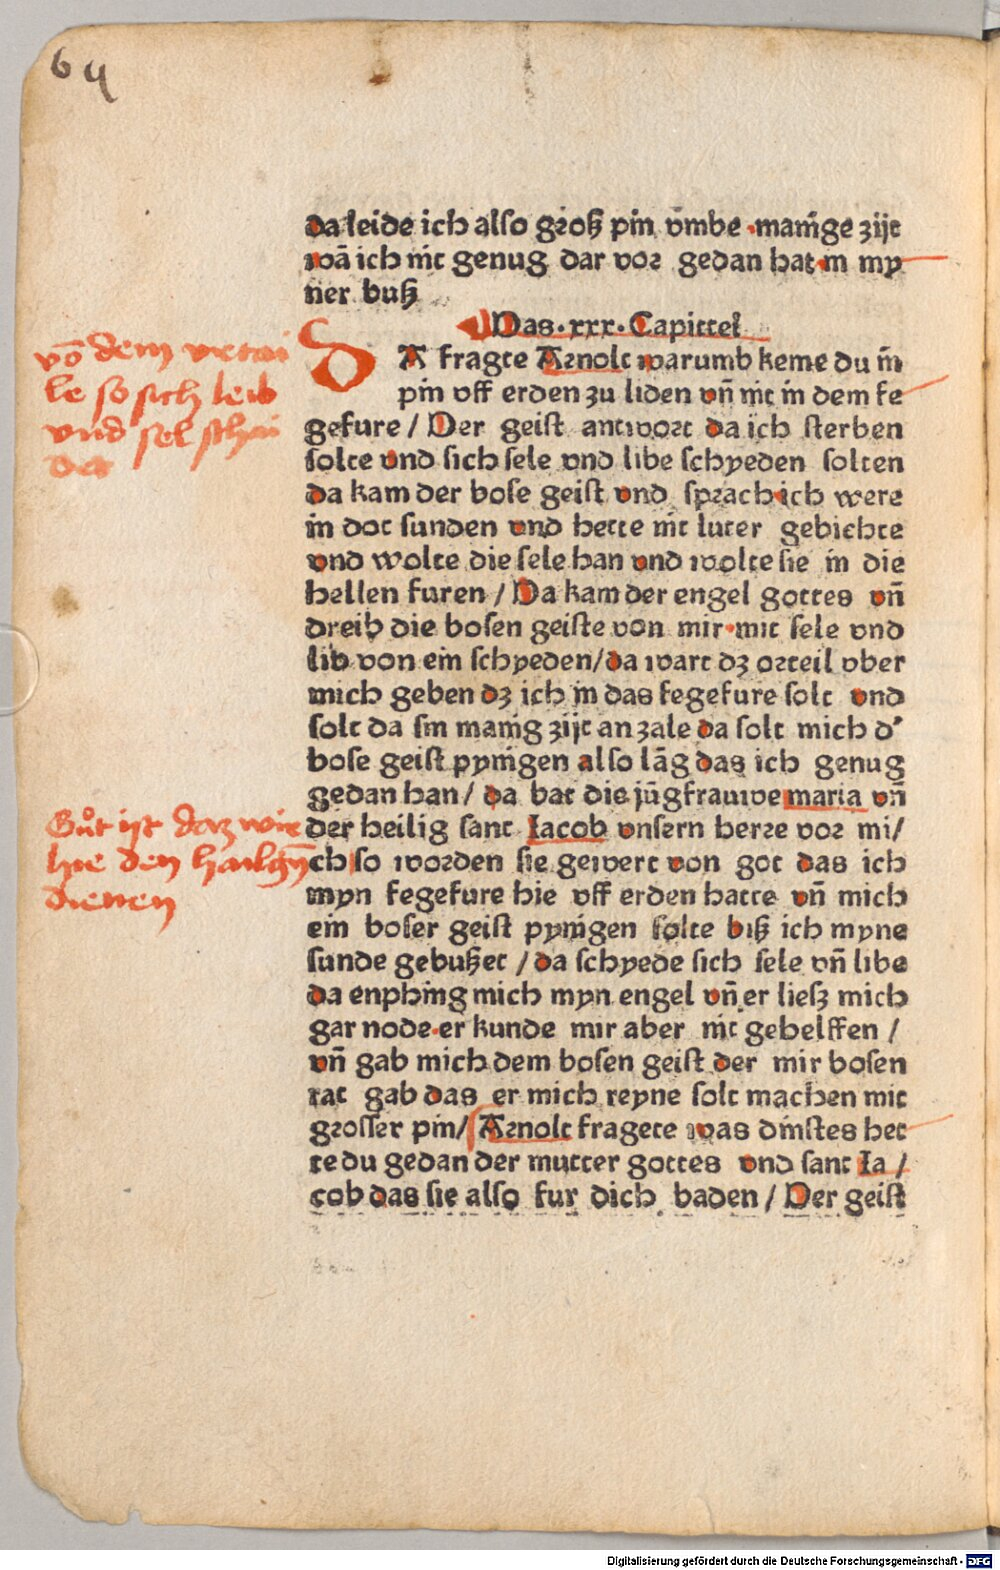 64
da leide ich also groß pin vmbe manige zijt
wā ich nit genug dar vor gedan hat in my
ner buß
Das . xxx . Capittel
DA fragte Arnolt warumb keme du in
pin vff erden zu liden vn̄ nit in dem fe
gefure / Der geist antwort da ich sterben
solte vnd sich sele vnd libe schyeden solten
da kam der bose geist vnd sprach ich were
in dot sunden vnd hette nit luter gebichte
vnd wolte die sele han vnd wolte sie in die
hellen furen / Da kam der engel gottes vn̄
dreib die bosen geiste von mir mit sele vnd
lib von ein schyeden / da wart dz orteil vber
mich geben dz ich in das fegefure solt vnd
solt da sin manig zijt an zale da solt mich d'
bose geist pynigen also lāg das ich genug
gedan han / da bat die jūgfrauwe maria vn̄
der heilig sant Iacob vnsern herre vor mi/
ch so worden sie gewert von got das ich
myn fegefure hie vff erden hatte vn̄ mich
ein boser geist pynigen solte biß ich myne
sunde gebußet / da schyede sich sele vn̄ libe
da enphing mich myn engel vn̄ er ließ mich
gar node er kunde mir aber nit gehelffen /
vn̄ gab mich dem bosen geist der mir bosen
rat gab das er mich reyne solt machen mit
grosser pin / Arnolt fragete was dinstes het
te du gedan der mutter gottes vnd sant Ia /
cob das sie also fur dich baden / Der geist
vō dem vrtai
le so sich leib
vnd sel schai
det
Gůt ist daz wir
hie den hailgn̄
dienen
Digitalisierung gefördert durch die Deutsche Forschungsgemeinschaft - DFG